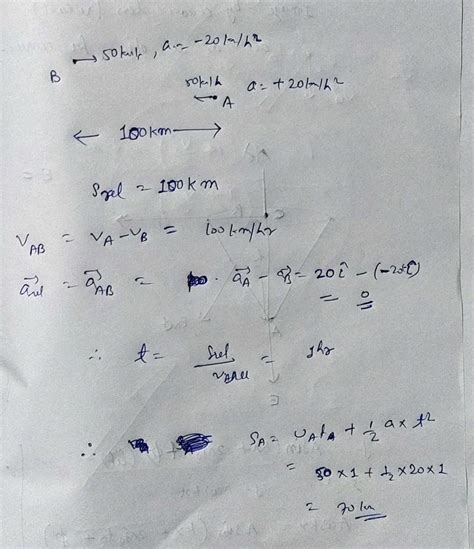 B → 50km/h, a = -20km/h²
50km/h ← A a = +20km/h²
← 100km →
Srel = 100km
V_AB = V_A - V_B = 100km/hr
a⃗rel = a⃗_AB = a⃗_A - a⃗_B = 20î - (-20î)
= 0
∴ t = Srel / = 1hr
∴ S_A = u_A t_A + 1/2 a × t²
= 50 × 1 + 1/2 × 20 × 1
= 70km